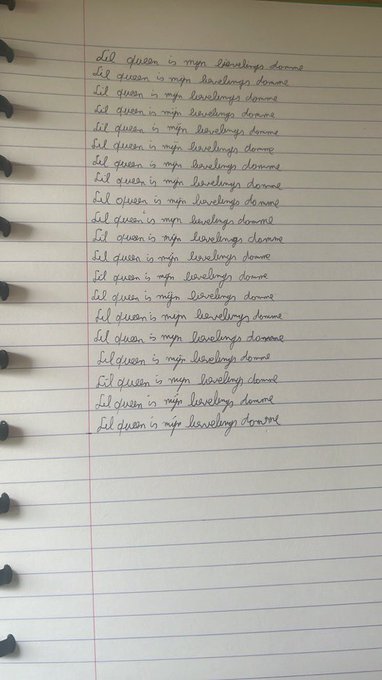 Lil queen is mijn lievelings domme
Lil queen is mijn lievelings domme
Lil queen is mijn lievelings domme
Lil queen is mijn lievelings domme
Lil queen is mijn lievelings domme
Lil queen is mijn lievelings domme
Lil queen is mijn lievelings domme
Lil queen is mijn lievelings domme
Lil queen is mijn lievelings domme
Lil queen is mijn lievelings domme
Lil queen is mijn lievelings domme
Lil queen is mijn lievelings domme
Lil queen is mijn lievelings domme
Lil queen is mijn lievelings domme
Lil queen is mijn lievelings domme
Lil queen is mijn lievelings domme
Lil queen is mijn lievelings domme
Lil queen is mijn lievelings domme
Lil queen is mijn lievelings domme
Lil queen is mijn lievelings domme